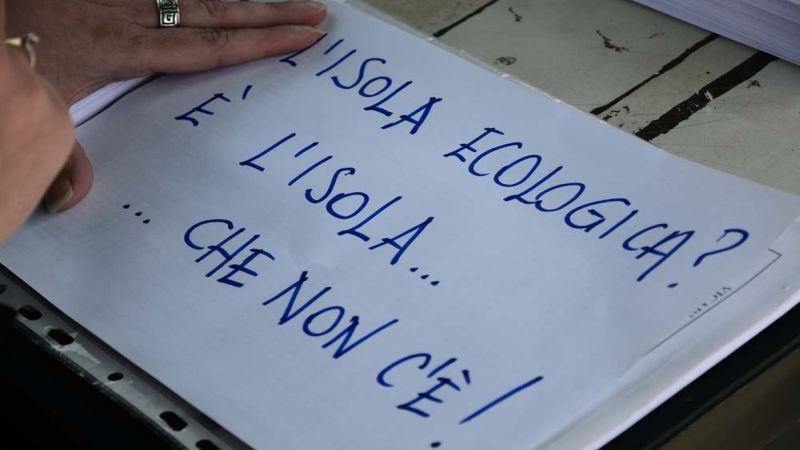 L'ISOLA ECOLOGICA?
È L'ISOLA...
... CHE NON C'È!